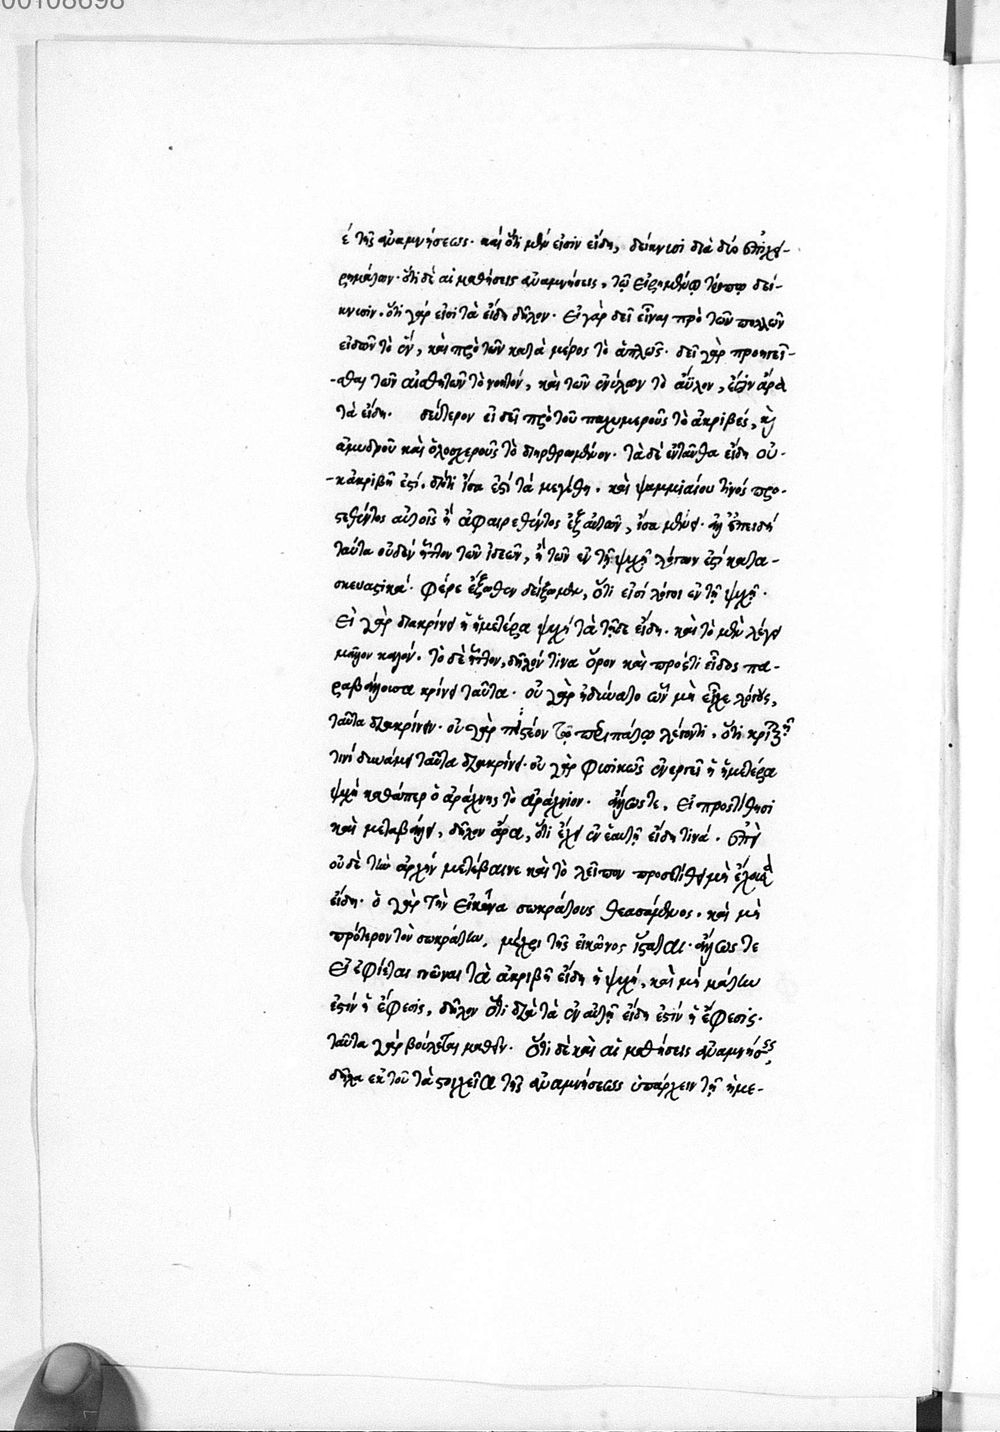 00108698
ἐ τῆς ἀναμνήσεως· καὶ ὅτι μὲν εἰσὶν εἴδη, δείκνυσι διὰ δύο ἐπιχει-
ρημάτων· ὅτι δὲ αἱ μαθήσεις ἀναμνήσεις, τῷ εἰρημένῳ τρόπῳ δεί-
κνυσιν. ὅτι γάρ εἰσι τὰ εἴδη δῆλον· εἰ γὰρ δεῖ εἶναι πρὸ τῶν πολλῶν
εἰδῶν τὸ ἕν, καὶ πρὸ τῶν κατὰ μέρος τὸ ἁπλῶς· δεῖ γὰρ προηγεῖ-
-σθαι τῶν αἰσθητῶν τὸ νοητόν, καὶ τῶν ἐνύλων τὸ ἄϋλον, ἔστιν ἄρα
τὰ εἴδη. δεύτερον εἰ δεῖ πρὸ τοῦ παχυμεροῦς τὸ ἀκριβές, καὶ
ἀμυδροῦ καὶ ὁλοσχεροῦς τὸ διηρθρωμένον· τὰ δὲ ἐνταῦθα εἴδη οὐ-
-κ ἀκριβῆ ἐστί. διότι ἴσα ἐστὶ τὰ μεγέθη. καὶ ψαμμιαίου τινός προ-
στεθέντος αὐτοῖς ἢ ἀφαιρεθέντος ἐξ αὐτῶν, ἴσα μένει· ἐπειδὴ
ταῦτα οὐδὲν ἧττον τῶν ἰδεῶν, ἢ τῶν ἐν τῇ ψυχῇ λόγων ἐστὶ κατα-
σκευαστικά· φέρε ἔξωθεν δείξωμεν, ὅτι εἰσὶ λόγοι ἐν τῇ ψυχῇ·
εἰ γὰρ διακρίνει ἡ ἡμετέρα ψυχὴ τὰ τῇδε εἴδη. καὶ τὸ μὲν λέγει
μᾶλλον καλόν. τὸ δὲ ἧττον, δηλονότι τινα ὅρον καὶ πρός τι εἶδος πα-
ραβάλλουσα κρίνει ταῦτα· οὐ γὰρ ἠδύνατο ἂν μὴ εἶχε λόγους,
ταῦτα διακρίνειν. οὐ γὰρ πιστέον τῷ περιπάτῳ λέγοντι, ὅτι κριτικῇ
τινὶ δυνάμει ταῦτα διακρίνει· οὐ γὰρ φυσικῶς ἐνεργεῖ ἡ ἡμετέρα
ψυχὴ καθάπερ ὁ ἀράχνης τὸ ἀράχνιον. ἄλλως τε, εἰ προστίθησι
καὶ μεταβάλλει, δῆλον ἄρα, ὅτι ἔχει ἐν ἑαυτῇ εἴδη τινά. ἐπεὶ
οὐδὲ τὴν ἀρχὴν μετέβαινε καὶ τὸ λεῖπον προσετίθει μὴ ἔχουσα
εἴδη. ὁ γὰρ τὴν εἰκόνα σωκράτους θεασάμενος. καὶ μὴ
πρότερον τὸν σωκράτην, μέχρι τῆς εἰκόνος ἵσταται· ἄλλως τε
εἰ ἐφίεται γνῶναι τὰ ἀκριβῆ εἴδη ἡ ψυχή, καὶ μὴ μάτην
ἐστὶν ἡ ἔφεσις, δῆλον ὅτι διὰ τὰ ἐν αὐτῇ εἴδη ἐστὶν ἡ ἔφεσις.
ταῦτα γὰρ βούλεται μαθεῖν. ὅτι δὲ καὶ αἱ μαθήσεις ἀναμνήσεις,
δῆλα ἐκ τοῦ τὰ στοιχεῖα τῆς ἀναμνήσεως ὑπάρχειν τῇ ἡμε-